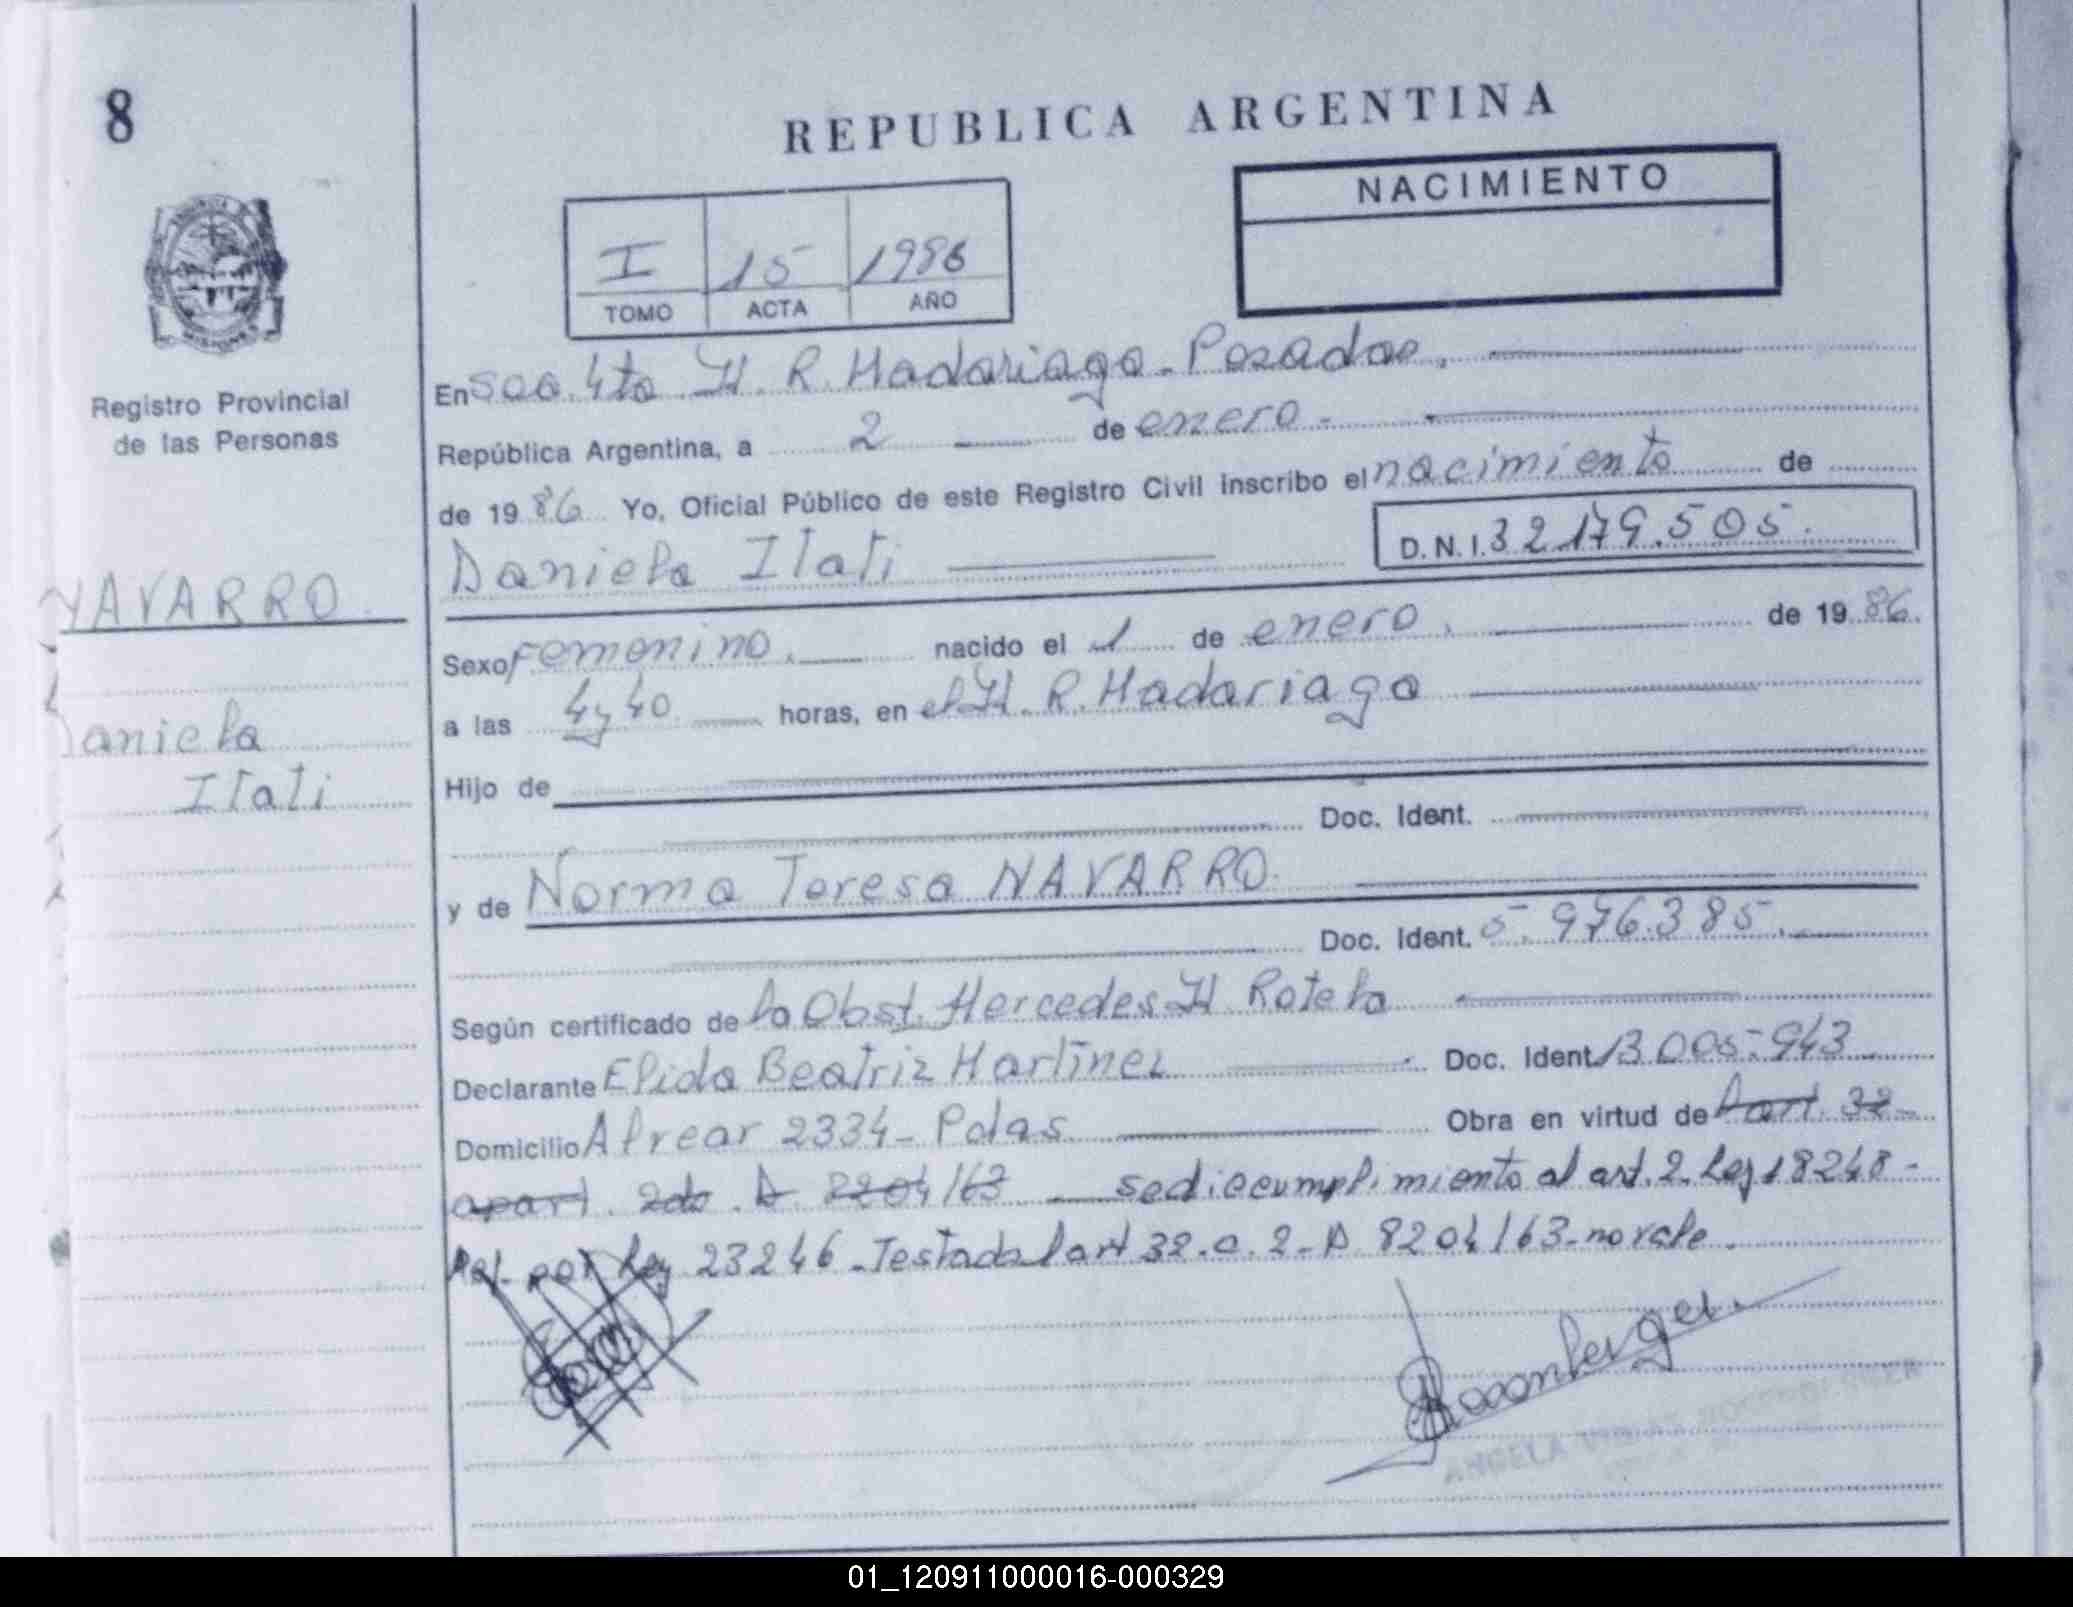 8
REPUBLICA ARGENTINA
NACIMIENTO
I 15 1986
TOMO ACTA AÑO
Registro Provincial
de las Personas
NAVARRO
Daniela
Itati
En Secc. 4ta H. R. Madariaga - Posadas.
República Argentina, a 2 de enero.
de 1986 Yo, Oficial Público de este Registro Civil inscribo el nacimiento de
D.N.I. 32179.505.
Daniela Itati
Sexo Femenino. nacido el 1 de enero. de 1986.
a las 4 y 40 horas, en el H. R. Madariaga
Hijo de
Doc. Ident.
y de Norma Teresa NAVARRO.
Doc. Ident. 5.976.385.
Según certificado de la Obst. Mercedes H Rotela
Declarante Elida Beatriz Martínez Doc. Ident. 13005.943
Domicilio Alvear 2334 - Pdas Obra en virtud de art. 32
apart. 2do. D 8204/63 se dio cumplimiento al art. 2. Ley 18248 -
por Ley 23246 - Testado art 32. a. 2 - D 8204/63 - no vale.
ANGELA
01_120911000016-000329